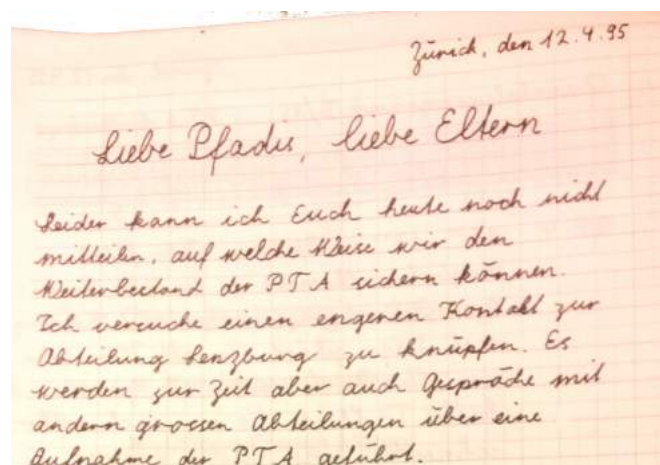 Zürich, den 12.4.95
Liebe Pfadis, liebe Eltern
Leider kann ich Euch heute noch nicht
mitteilen, auf welche Weise wir den
Weiterbestand der PTA sichern können.
Ich versuche einen engeren Kontakt zur
Abteilung Lenzburg zu knüpfen. Es
werden zur Zeit aber auch Gespräche mit
andern grossen Abteilungen über eine
Aufnahme der PTA geführt.